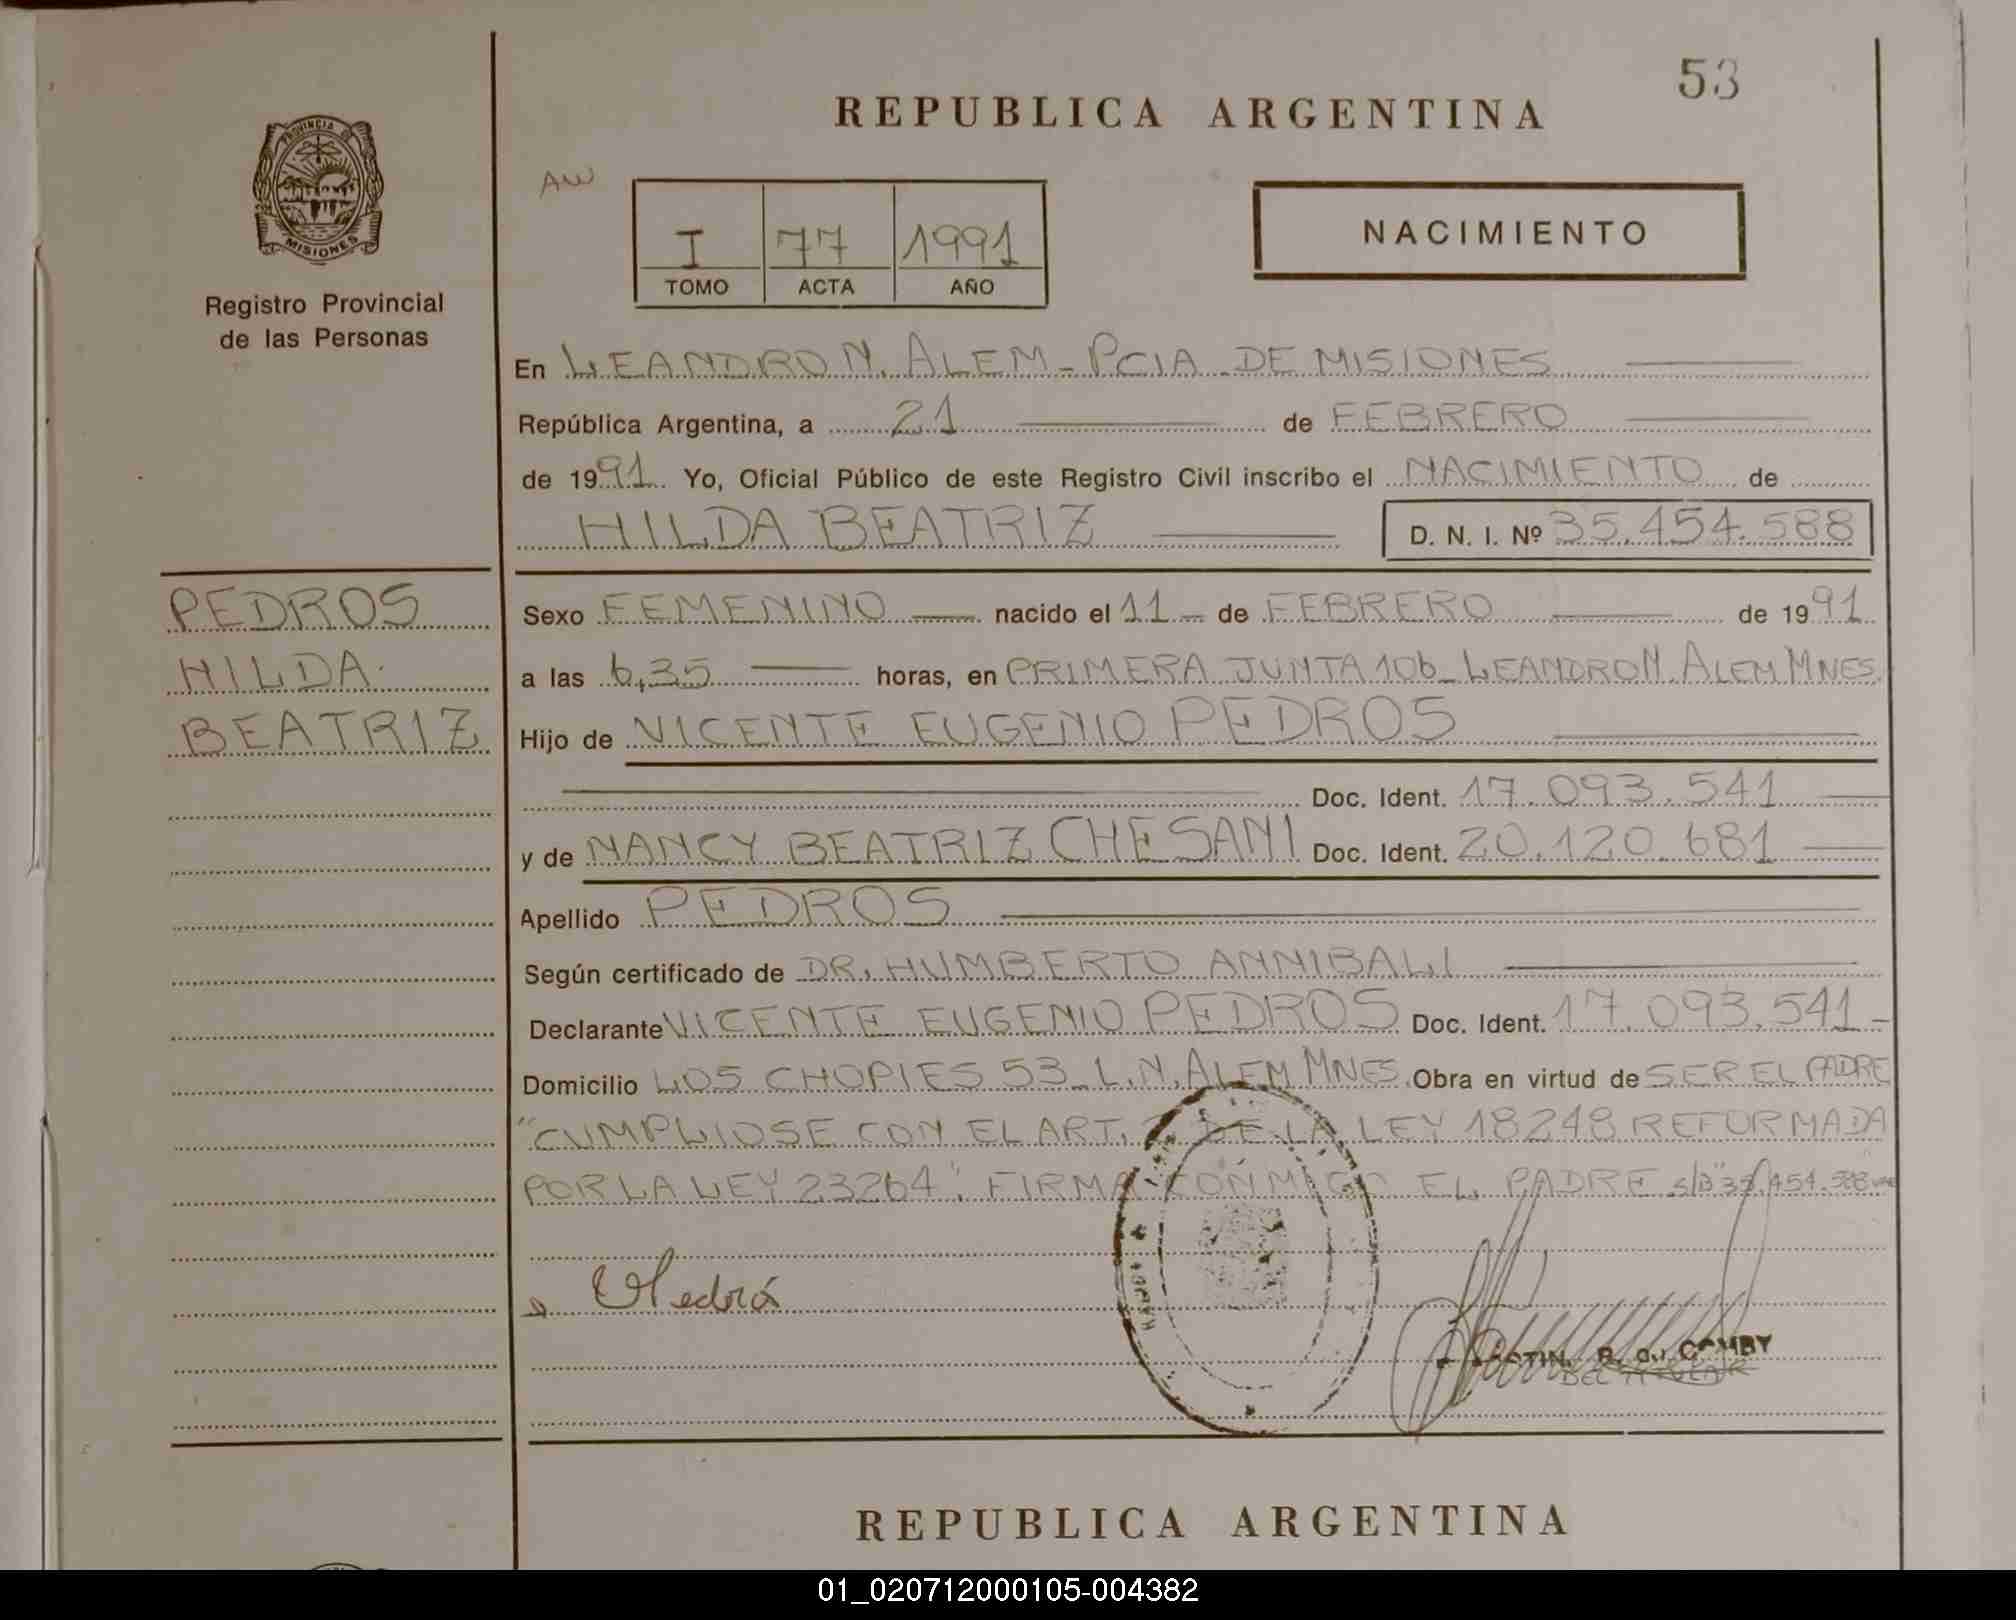 53
REPUBLICA ARGENTINA
PROVINCIA DE
MISIONES
Registro Provincial
de las Personas
AW
I 77 1991
TOMO ACTA AÑO
NACIMIENTO
En LEANDRO N. ALEM - PCIA DE MISIONES
República Argentina, a 21 de FEBRERO
de 1991. Yo, Oficial Público de este Registro Civil inscribo el NACIMIENTO de
HILDA BEATRIZ D. N. I. Nº 35.454.588
PEDROS
HILDA
BEATRIZ
Sexo FEMENINO nacido el 11 de FEBRERO de 1991
a las 6,35 horas, en PRIMERA JUNTA 106 - LEANDRO N. ALEM MNES
Hijo de VICENTE EUGENIO PEDROS
Doc. Ident. 17.093.541
y de NANCY BEATRIZ CHESANI Doc. Ident. 20.120.681
Apellido PEDROS
Según certificado de DR. HUMBERTO ANNIBALI
Declarante VICENTE EUGENIO PEDROS Doc. Ident. 17.093.541
Domicilio LOS CHOPIES 53 - L.N. ALEM MNES. Obra en virtud de SER EL PADRE
"CUMPLIOSE CON EL ART. DE LA LEY 18248 REFORMADA
POR LA LEY 23264". FIRMA CONMIGO EL PADRE S/B "35.454.588" VALE
REPUBLICA ARGENTINA
01_020712000105-004382